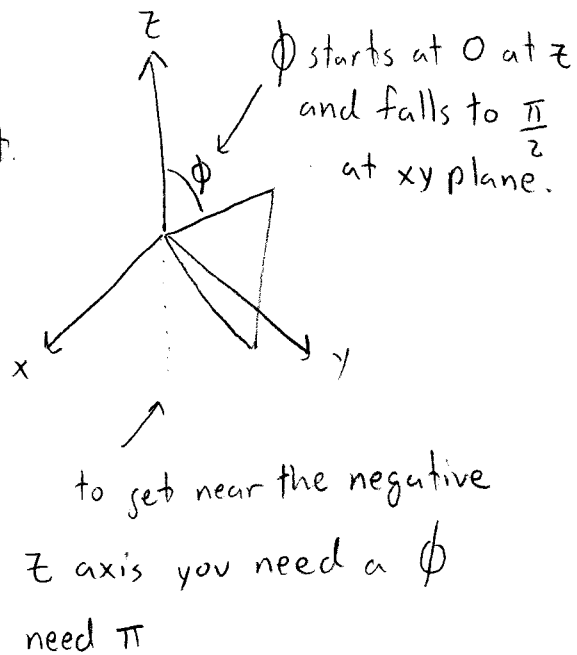 z
ϕ starts at 0 at z
and falls to π/2
at xy plane.
ϕ
x
y
to get near the negative
z axis you need a ϕ
need π